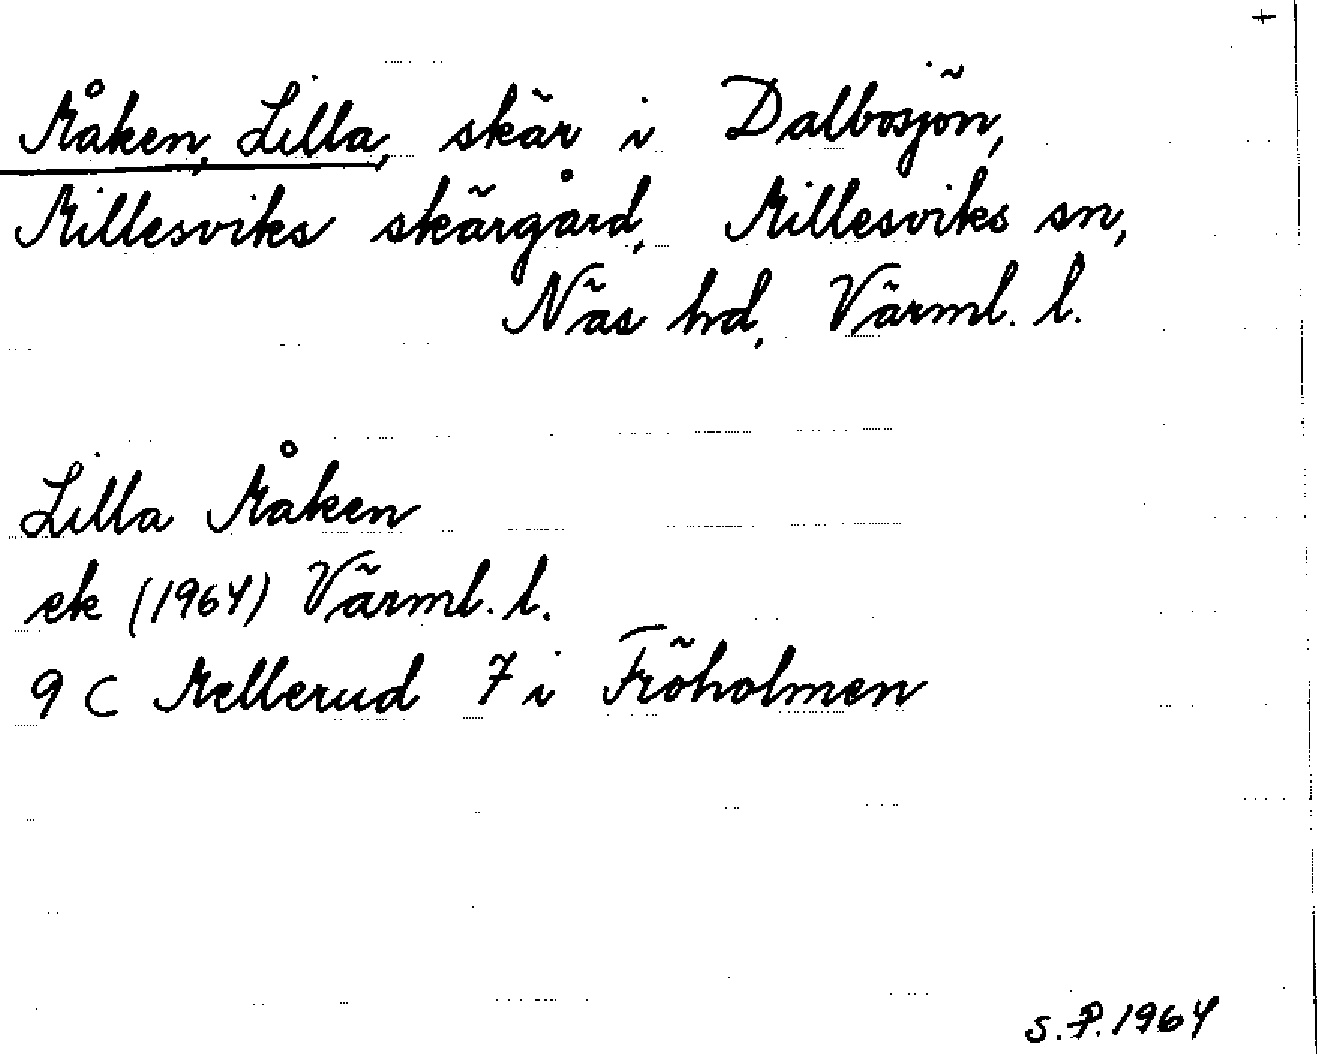 +
Måken, Lilla, skär i Dalbosjön,
Millesviks skärgård, Millesviks sn,
Näs hd, Värml. l.
Lilla Måken
ek (1964) Värml. l.
9 C Mellerud 7 i Fröholmen
S.P. 1964